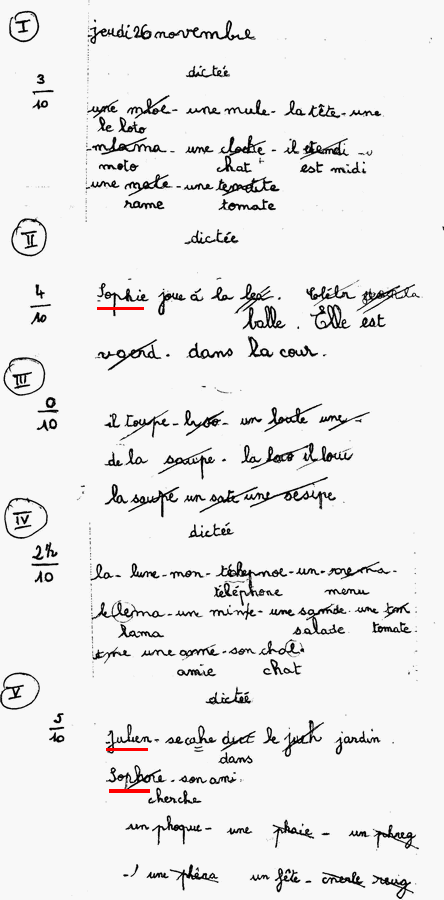 I
jeudi 26 novembre
dictée
3/10
une mloe - une mule - la tête - une
le loto
mlama - une cloche - il etendi
moto chat est midi
une mate - une
rame tomate
II
dictée
4/10
Sophie joue á la lea.
balle. Elle est
vaerd. dans la cour.
III
0/10
il toupe - - un loute une
de la soupe - la loco il loue
la soupe un sate une sesipe
IV
dictée
2½/10
la - lune - mon - - un - rrema -
téléphone menu
le lema - une minfe - une samde une ton
lama salade tomate
une une amé - son chat
amie chat
V
dictée
5/10
Julien - se cahe dect le juch jardin
dans
Sophore - son ami
cherche
un phoque - une phaie - un phreg
une phêra un fête - cnerle roug